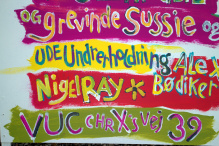 og grevinde Sussie og
UDE Underholdning ALEX
NigelRAY * Bødiker
VUC CHR X's Vej 39